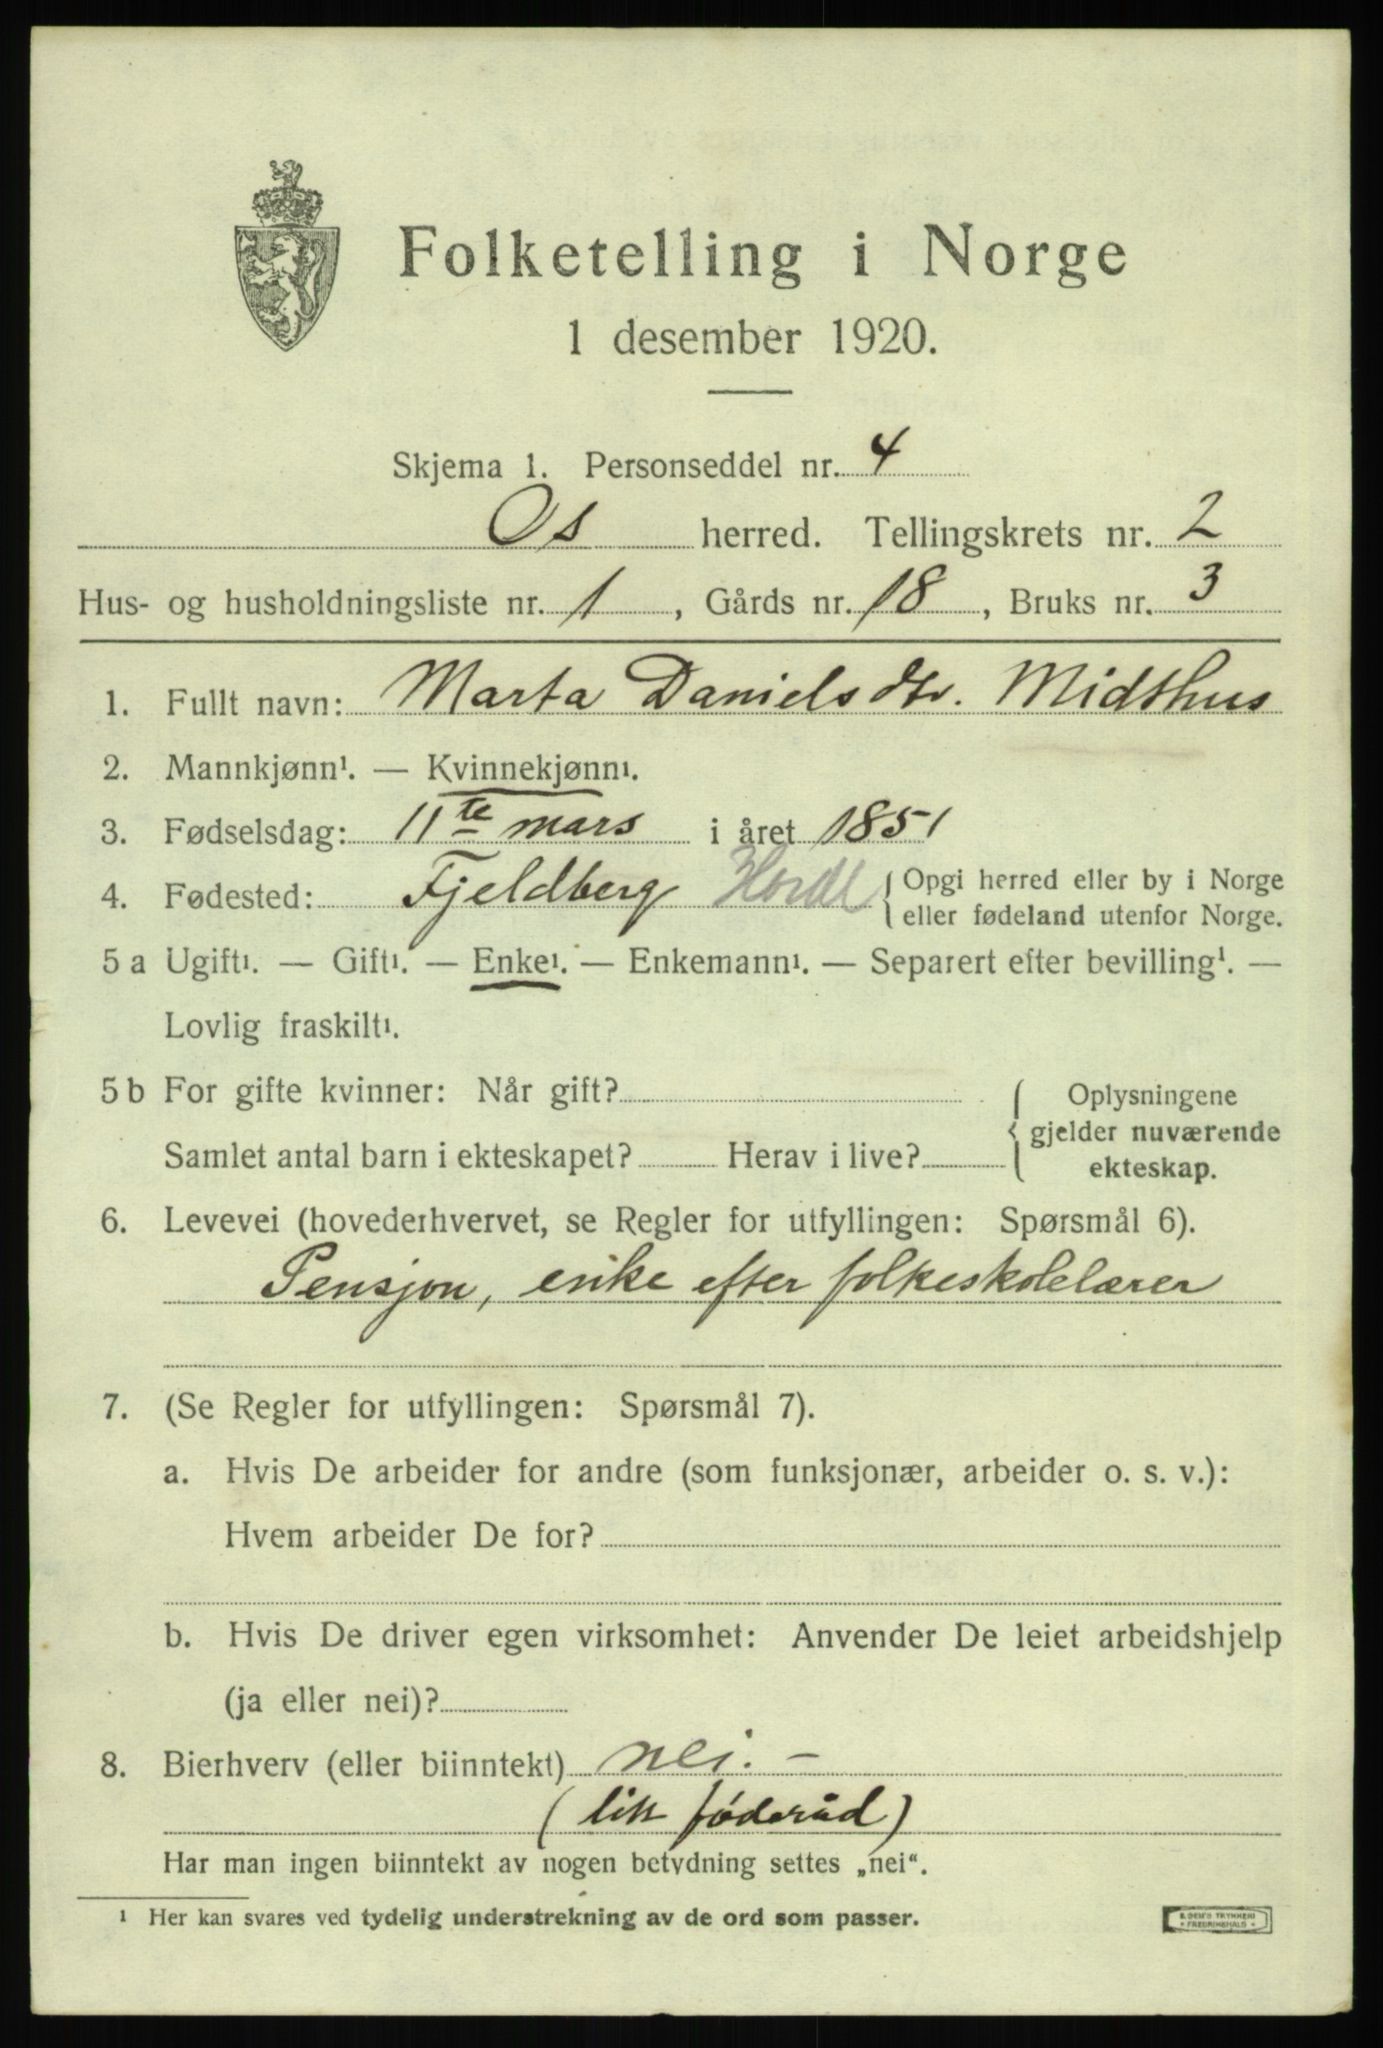 Folketelling i Norge
1 desember 1920.
Skjema 1. Personseddel nr. 4
Os herred. Tellingskrets nr. 2
Hus- og husholdningsliste nr. 1, Gårds nr. 18, Bruks nr. 3
1. Fullt navn: Marta Danielsdtr. Midthus
2. Mannkjønn¹. — Kvinnekjønn¹.
3. Fødselsdag: 11te mars i året 1851
4. Fødested: Fjeldberg Hordl { Opgi herred eller by i Norge
eller fødeland utenfor Norge.
5 a Ugift¹. — Gift¹. — Enke¹. — Enkemann¹. — Separert efter bevilling¹. —
Lovlig fraskilt¹.
5 b For gifte kvinner: Når gift? { Oplysningene
gjelder nuværende
Samlet antal barn i ekteskapet? Herav i live? ekteskap.
6. Levevei (hovederhvervet, se Regler for utfyllingen: Spørsmål 6).
Pensjon, enke efter folkeskolelærer
7. (Se Regler for utfyllingen: Spørsmål 7).
a. Hvis De arbeider for andre (som funksjonær, arbeider o. s. v.):
Hvem arbeider De for?
b. Hvis De driver egen virksomhet: Anvender De leiet arbeidshjelp
(ja eller nei)?
8. Bierhverv (eller biinntekt) nei. —
(litt føderåd)
Har man ingen biinntekt av nogen betydning settes „nei“.
¹ Her kan svares ved tydelig understrekning av de ord som passer.